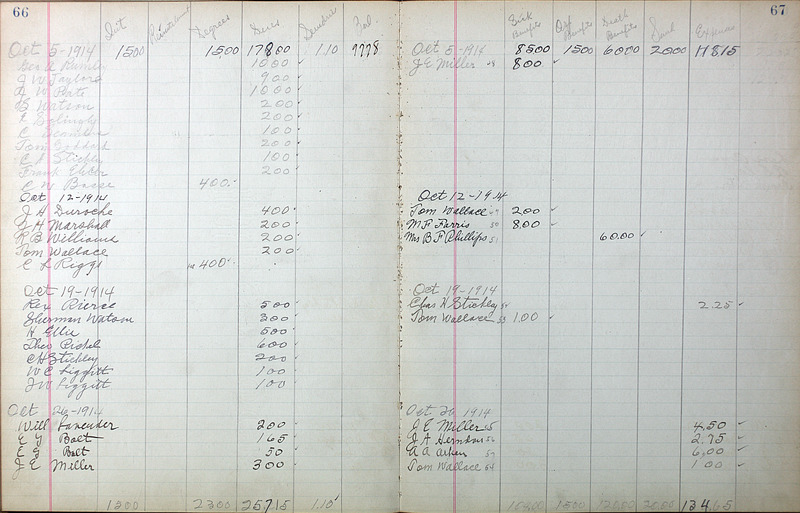 66
Dues
Oct 5-1914 1500 1500 17800 1.10
1000
J W Taylor 900
J W 1000
Watson 200
E 200
C 100
Tom Goddard 200
C H Stickley 100
Frank 200
C W 400.-
Oct 12-1914
J H 400
G H Marshall 200
R B Williams 200
Tom Wallace 200
C L Riggs 400-
Oct 19-1914
Rex Pierce 500
Sherman Watson 300
H Ellis 500
Theo 600
C H Stickley 200
W C Liggitt 100
J W Liggitt 100
Oct 26-1914
Will Lavender 200
E G Bolt 165
E G Bolt 50
J E Miller 300
1500 2300 257.15 1.10
67
Sick Benefits Death Benefits Expenses
Oct 5-1914 8500 1500 6000 2000 118.15
J E Miller 48 800
Oct 12-1914
Tom Wallace 49 200
M F Farris 50 800
Mrs B F Phillips 51 60.00
Oct 19-1914
Chas H Stickley 2.25
Tom Wallace 53 1.00
Oct 26 1914
J E Miller 55 4.50
J A Herndon 56 2.75
A A 57 6.00
Tom Wallace 54 1 00
1500 12000 2000 134.65